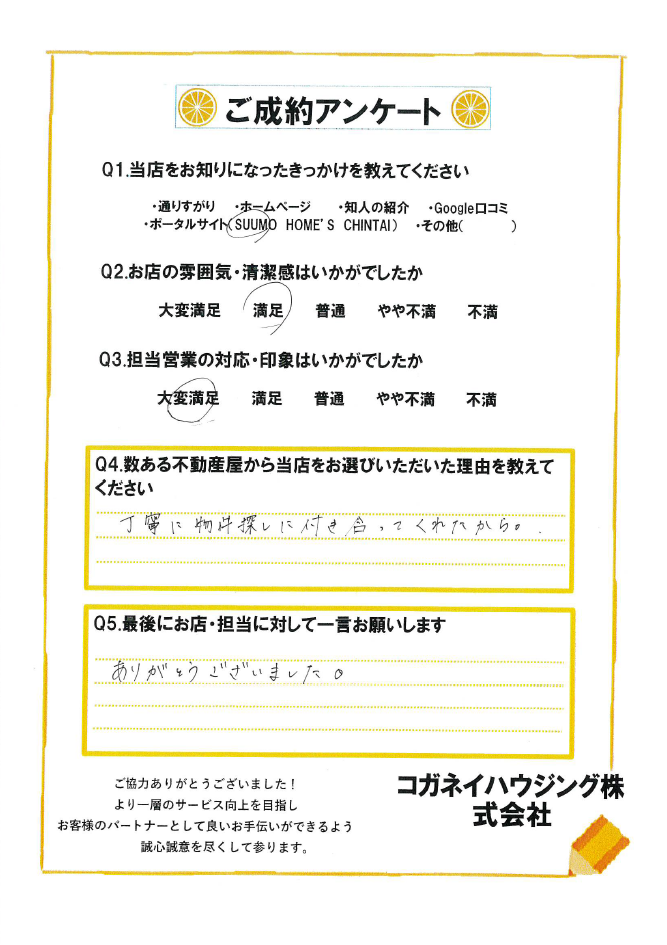 ご成約アンケート
Q1.当店をお知りになったきっかけを教えてください
・通りすがり ・ホームページ ・知人の紹介 ・Google口コミ
・ポータルサイト(SUUMO HOME'S CHINTAI) ・その他( )
Q2.お店の雰囲気・清潔感はいかがでしたか
大変満足 満足 普通 やや不満 不満
Q3.担当営業の対応・印象はいかがでしたか
大変満足 満足 普通 やや不満 不満
Q4.数ある不動産屋から当店をお選びいただいた理由を教えて
ください
丁寧に物件探しに付き合ってくれたから。
Q5.最後にお店・担当に対して一言お願いします
ありがとうございました。
ご協力ありがとうございました！
より一層のサービス向上を目指し
お客様のパートナーとして良いお手伝いができるよう
誠心誠意を尽くして参ります。
コガネイハウジング株
式会社